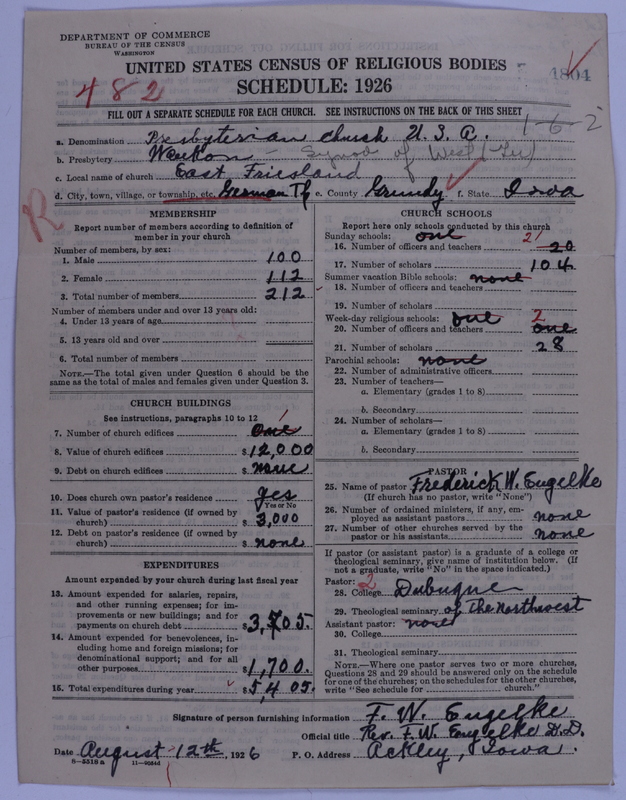 DEPARTMENT OF COMMERCE
BUREAU OF THE CENSUS
WASHINGTON
UNITED STATES CENSUS OF RELIGIOUS BODIES
SCHEDULE: 1926
482
1804
FILL OUT A SEPARATE SCHEDULE FOR EACH CHURCH. SEE INSTRUCTIONS ON THE BACK OF THIS SHEET
1-6-2
a. Denomination Presbyterian Church U.S.A.
b. Presbytery Waukon - Synod of West (Ger)
c. Local name of church East Friesland
d. City, town, village, or township, etc. German Tp e. County Grundy f. State Iowa
R
MEMBERSHIP
Report number of members according to definition of
member in your church
Number of members, by sex:
1. Male 100
2. Female 112
3. Total number of members 212
Number of members under and over 13 years old:
4. Under 13 years of age
5. 13 years old and over
6. Total number of members
NOTE.—The total given under Question 6 should be the
same as the total of males and females given under Question 3.
CHURCH BUILDINGS
See instructions, paragraphs 10 to 12
7. Number of church edifices one 1
8. Value of church edifices $12,000
9. Debt on church edifices $ none
10. Does church own pastor's residence yes
Yes or No
11. Value of pastor's residence (if owned by
church) $ 3,000
12. Debt on pastor's residence (if owned by
church) $ none
EXPENDITURES
Amount expended by your church during last fiscal year
13. Amount expended for salaries, repairs,
and other running expenses; for im-
provements or new buildings; and for
payments on church debt $3,705.
14. Amount expended for benevolences, in-
cluding home and foreign missions; for
denominational support; and for all
other purposes $1,700.
15. Total expenditures during year $5,405.
CHURCH SCHOOLS
Report here only schools conducted by this church
Sunday schools: one
16. Number of officers and teachers 21 20
17. Number of scholars 104
Summer vacation Bible schools: none
18. Number of officers and teachers
19. Number of scholars
Week-day religious schools: one 2
20. Number of officers and teachers one
21. Number of scholars 28
Parochial schools: none
22. Number of administrative officers
23. Number of teachers—
a. Elementary (grades 1 to 8)
b. Secondary
24. Number of scholars—
a. Elementary (grades 1 to 8)
b. Secondary
PASTOR
25. Name of pastor Frederick W. Engelke
(If church has no pastor, write "None")
26. Number of ordained ministers, if any, em-
ployed as assistant pastors none
27. Number of other churches served by the
pastor or his assistants none
If pastor (or assistant pastor) is a graduate of a college or
theological seminary, give name of institution below. (If
not a graduate, write "No" in the space indicated.)
Pastor: 2
28. College Dubuque
29. Theological seminary of The Northwest
Assistant pastor: none
30. College
31. Theological seminary
NOTE.—Where one pastor serves two or more churches,
Questions 28 and 29 should be answered only on the schedule
for one of the churches; on the schedules for the other churches,
write "See schedule for church."
Signature of person furnishing information F. W. Engelke
Official title Rev. F. W. Engelke D.D.
Date August 12th, 1926 P. O. Address Ackley, Iowa.
8-5318 a